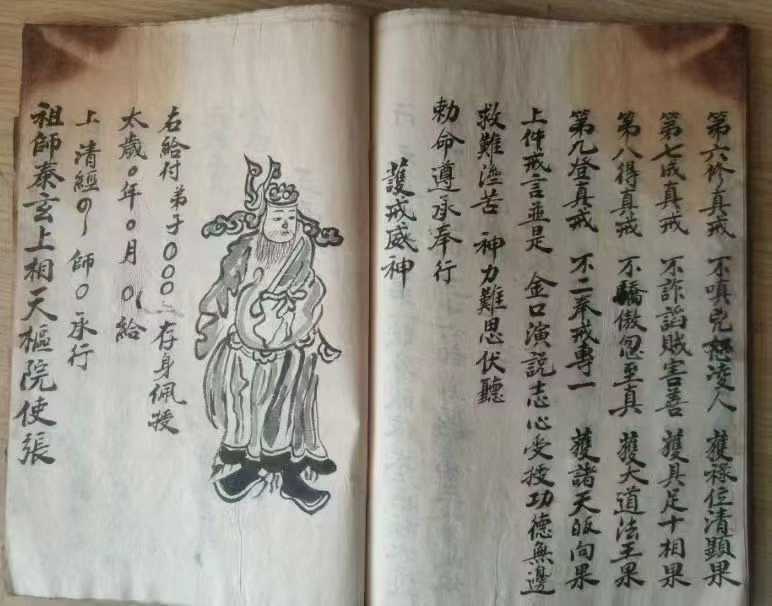 第六修真戒 不嗔兇怒凌人 獲祿位清顯果
第七成真戒 不詐謟賊害善 獲具足十相果
第八得真戒 不驕傲忽至真 獲大道法王果
第九登真戒 不二奉戒專一 獲諸天皈向果
上件戒言並是 金口演説志心受授功德無邊
救難濟苦 神力難思伏聽
勅命遵承奉行
護戒威神
右給付弟子〇〇〇 存身佩授
太歲〇年〇月 〇給
上清經 師〇承行
祖師泰玄上相天樞院使張